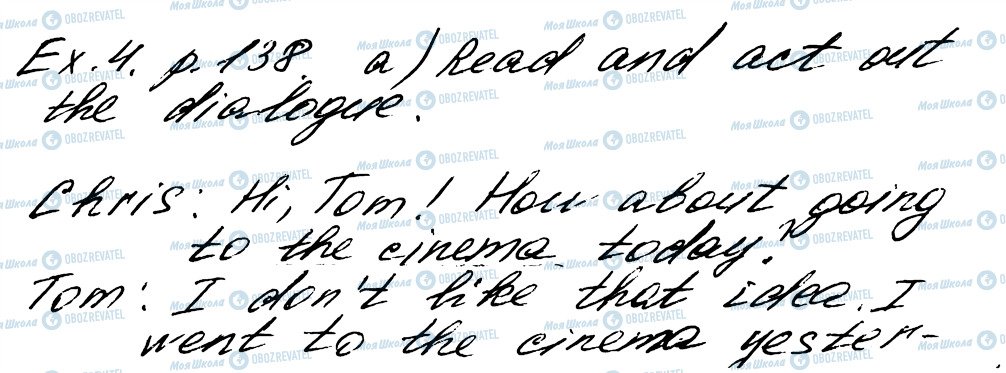 Ex.4. p.138. a) Read and act out
the dialogue.
Chris: Hi, Tom! How about going
to the cinema today?
Tom: I don't like that idea. I
went to the cinema yester-